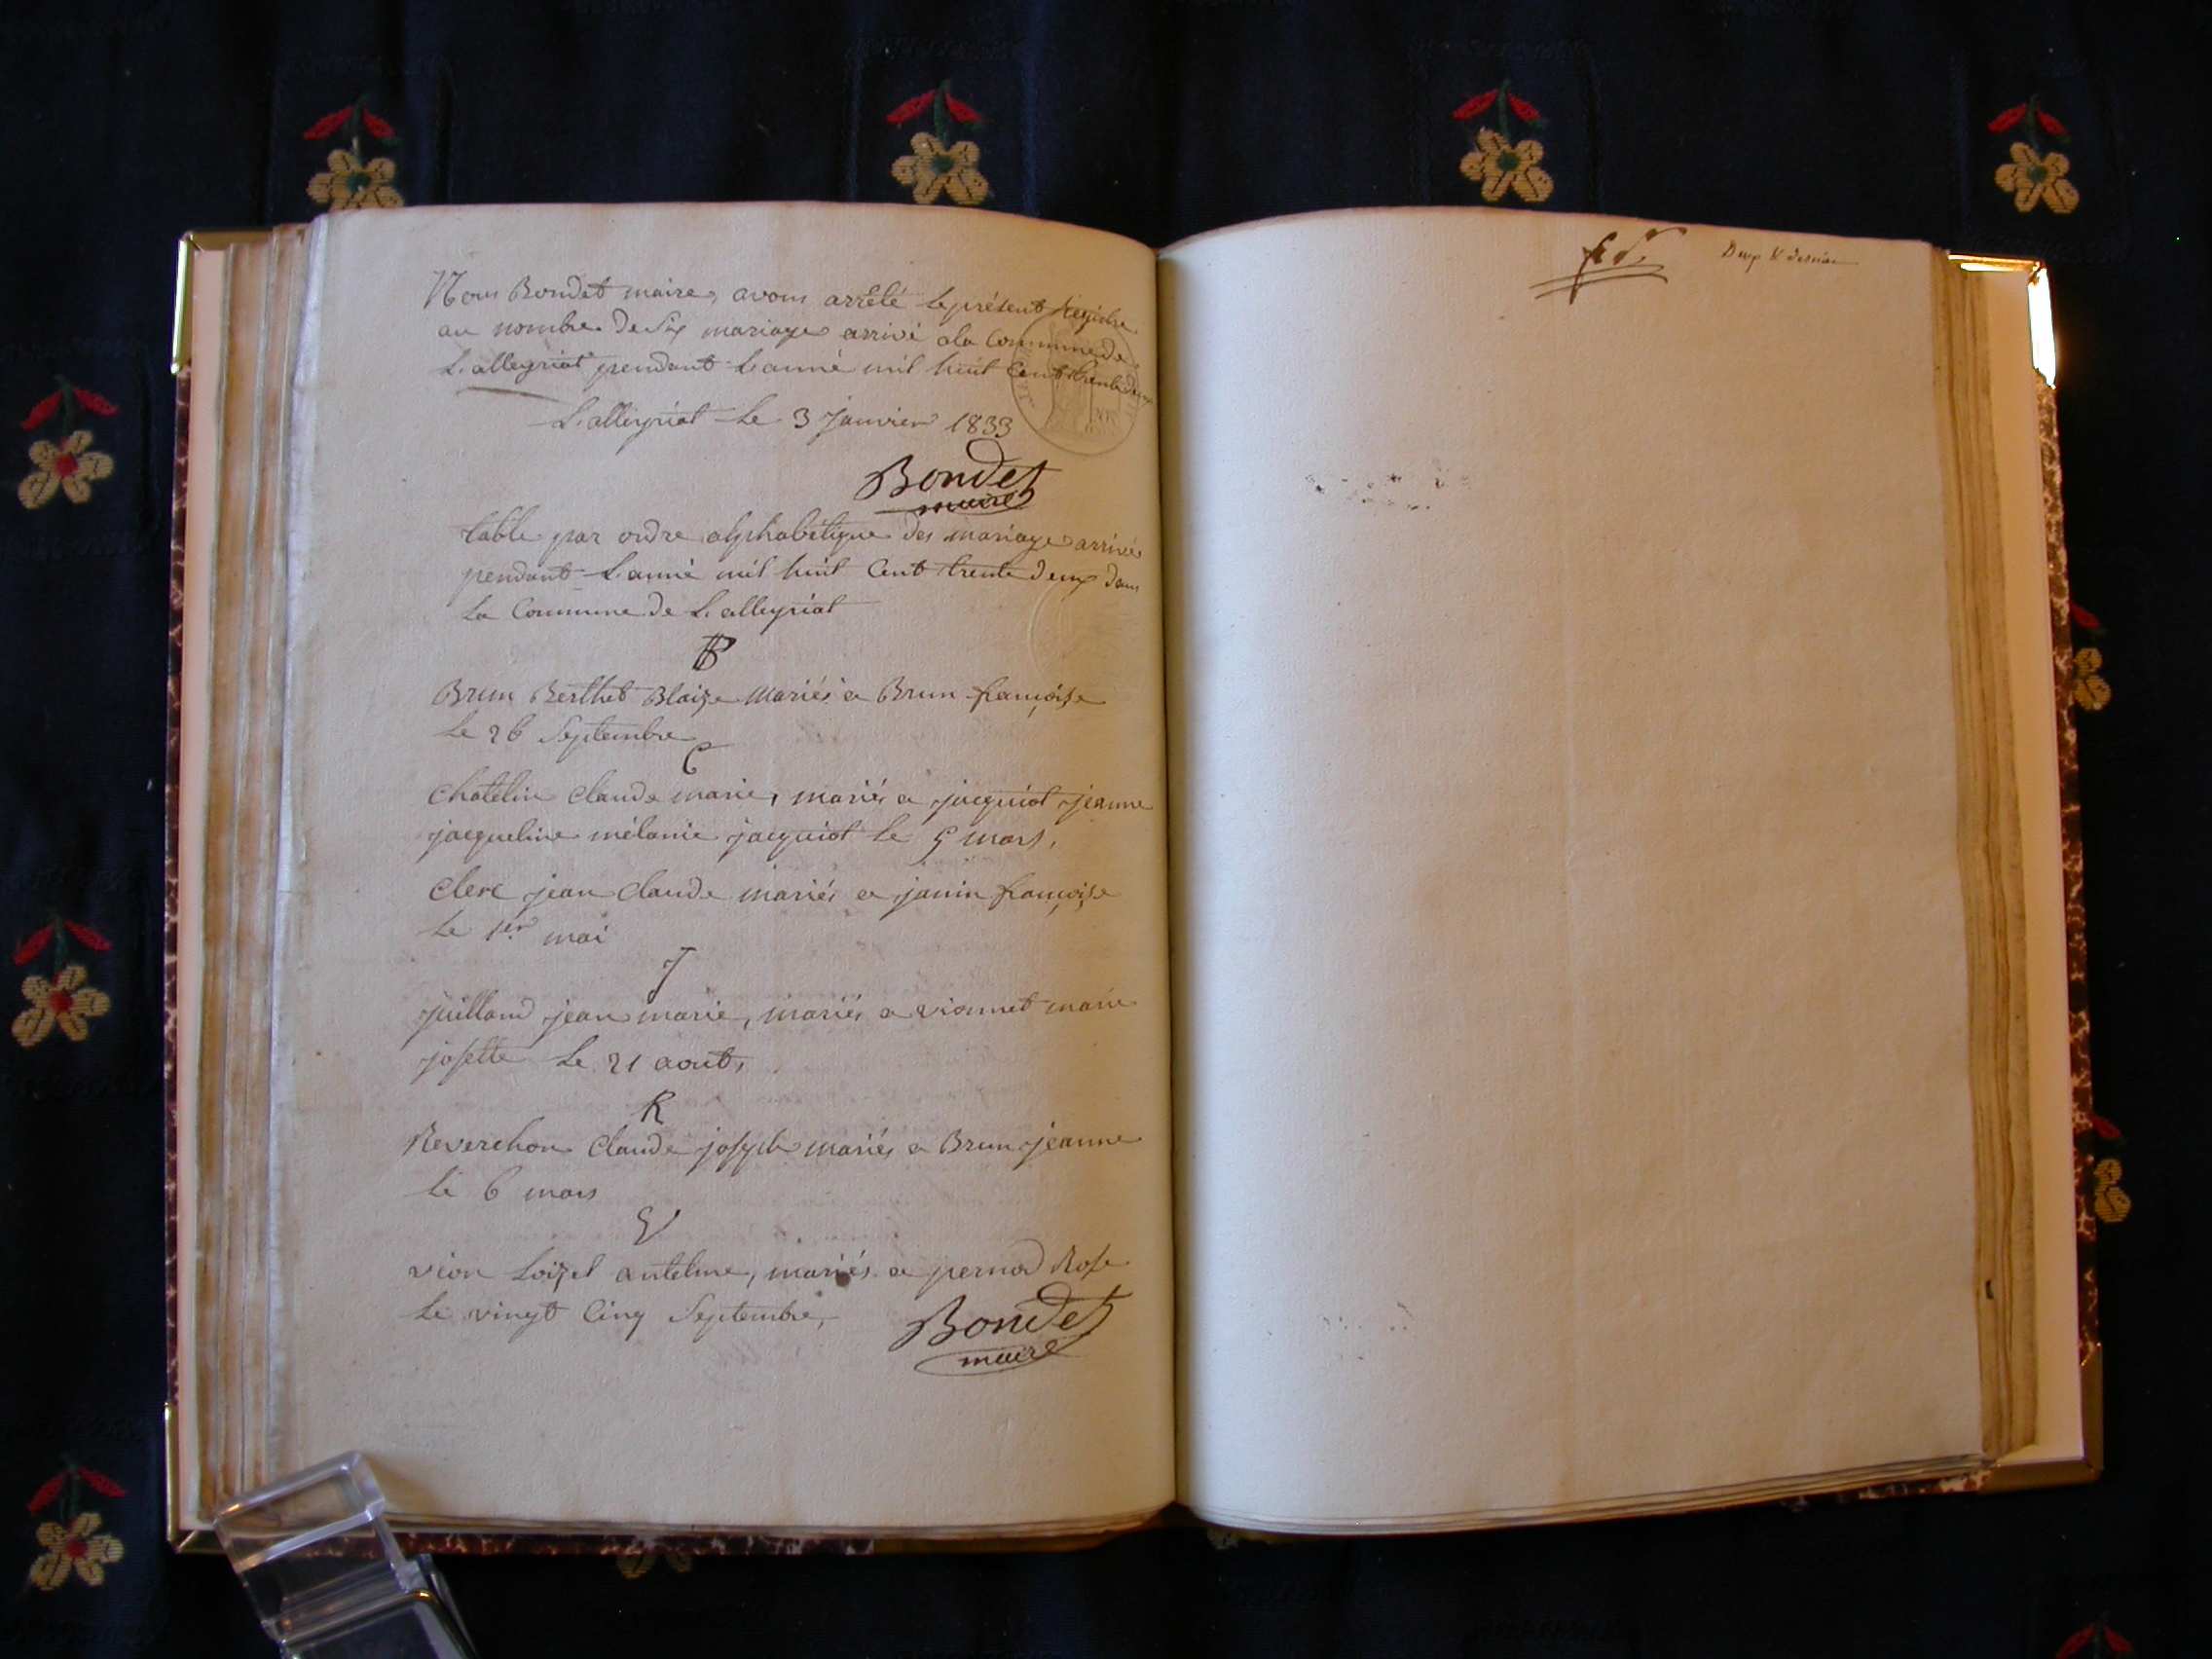 Nous Bondet maire, avons arrêté le présent Registre
au nombre de Six mariage arrivé a la Commune de
L'alleyriat pendant L'anné mil huit Cent trente deux
L'alleyriat Le 3 Janvier 1833
Bondet
maire
table par ordre alphabétique des mariage arrivé
pendant L'anné mil huit Cent trente deux dans
La Commune de L'alleyriat
B
Brun Berthet Blaize mariés a Brun françoise
Le 26 Septembre
C
Chatelin Claude marie, mariés a jacquiot jeanne
jacqueline mélanie jacquiot Le 5 mars,
Clerc jean Claude mariés a janin françoise
Le 1er mai
J
juilland jean marie, mariés a vionnet marie
josette Le 21 aout,
R
Reverchon Claude joseph mariés a Brun jeanne
Le 6 mars
V
vion Loizel antelme, mariés a pernod Rose
Le vingt Cinq Septembre,
Bondet
maire
Deux & dernier